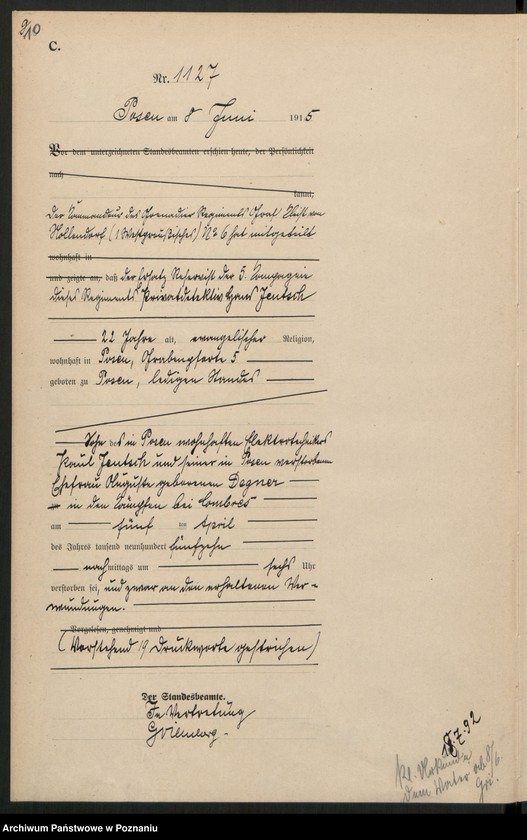 C.
Nr. 1127
Posen am 8 Juni 1915
Vor dem unterzeichneten Standesbeamten erschien heute, der Persönlichkeit
nach
kannt,
Der Kommandeur des Grenadier Regiments Graf Kleist von
Nollendorf (1 Westpreußisches) No 6 hat mitgeteilt
wohnhaft in
und zeigte an, daß der Ersatz Reservist der 5. Kompagnie
dieses Regiments Privatdetektiv Hans Jentsch
22 Jahre alt, evangelischer Religion,
wohnhaft in Posen, Grabenpforte 5
geboren zu Posen, ledigen Standes
Sohn des in Posen wohnhaften Elektrotechnikers
Paul Jentsch und seiner in Posen verstorbenen
Ehefrau Auguste geborenen Degner
in den Kämpfen bei Combres
am fünf ten April
des Jahres tausend neunhundert fünfzehn
nachmittags um sechs Uhr
verstorben sei, und zwar an den erhaltenen Ver-
wundungen.
Vorgelesen, genehmigt und
(Vorstehend 19 Druckworte gestrichen)
Der Standesbeamte.
In Vertretung
7.92
Archiwum Państwowe w Poznaniu